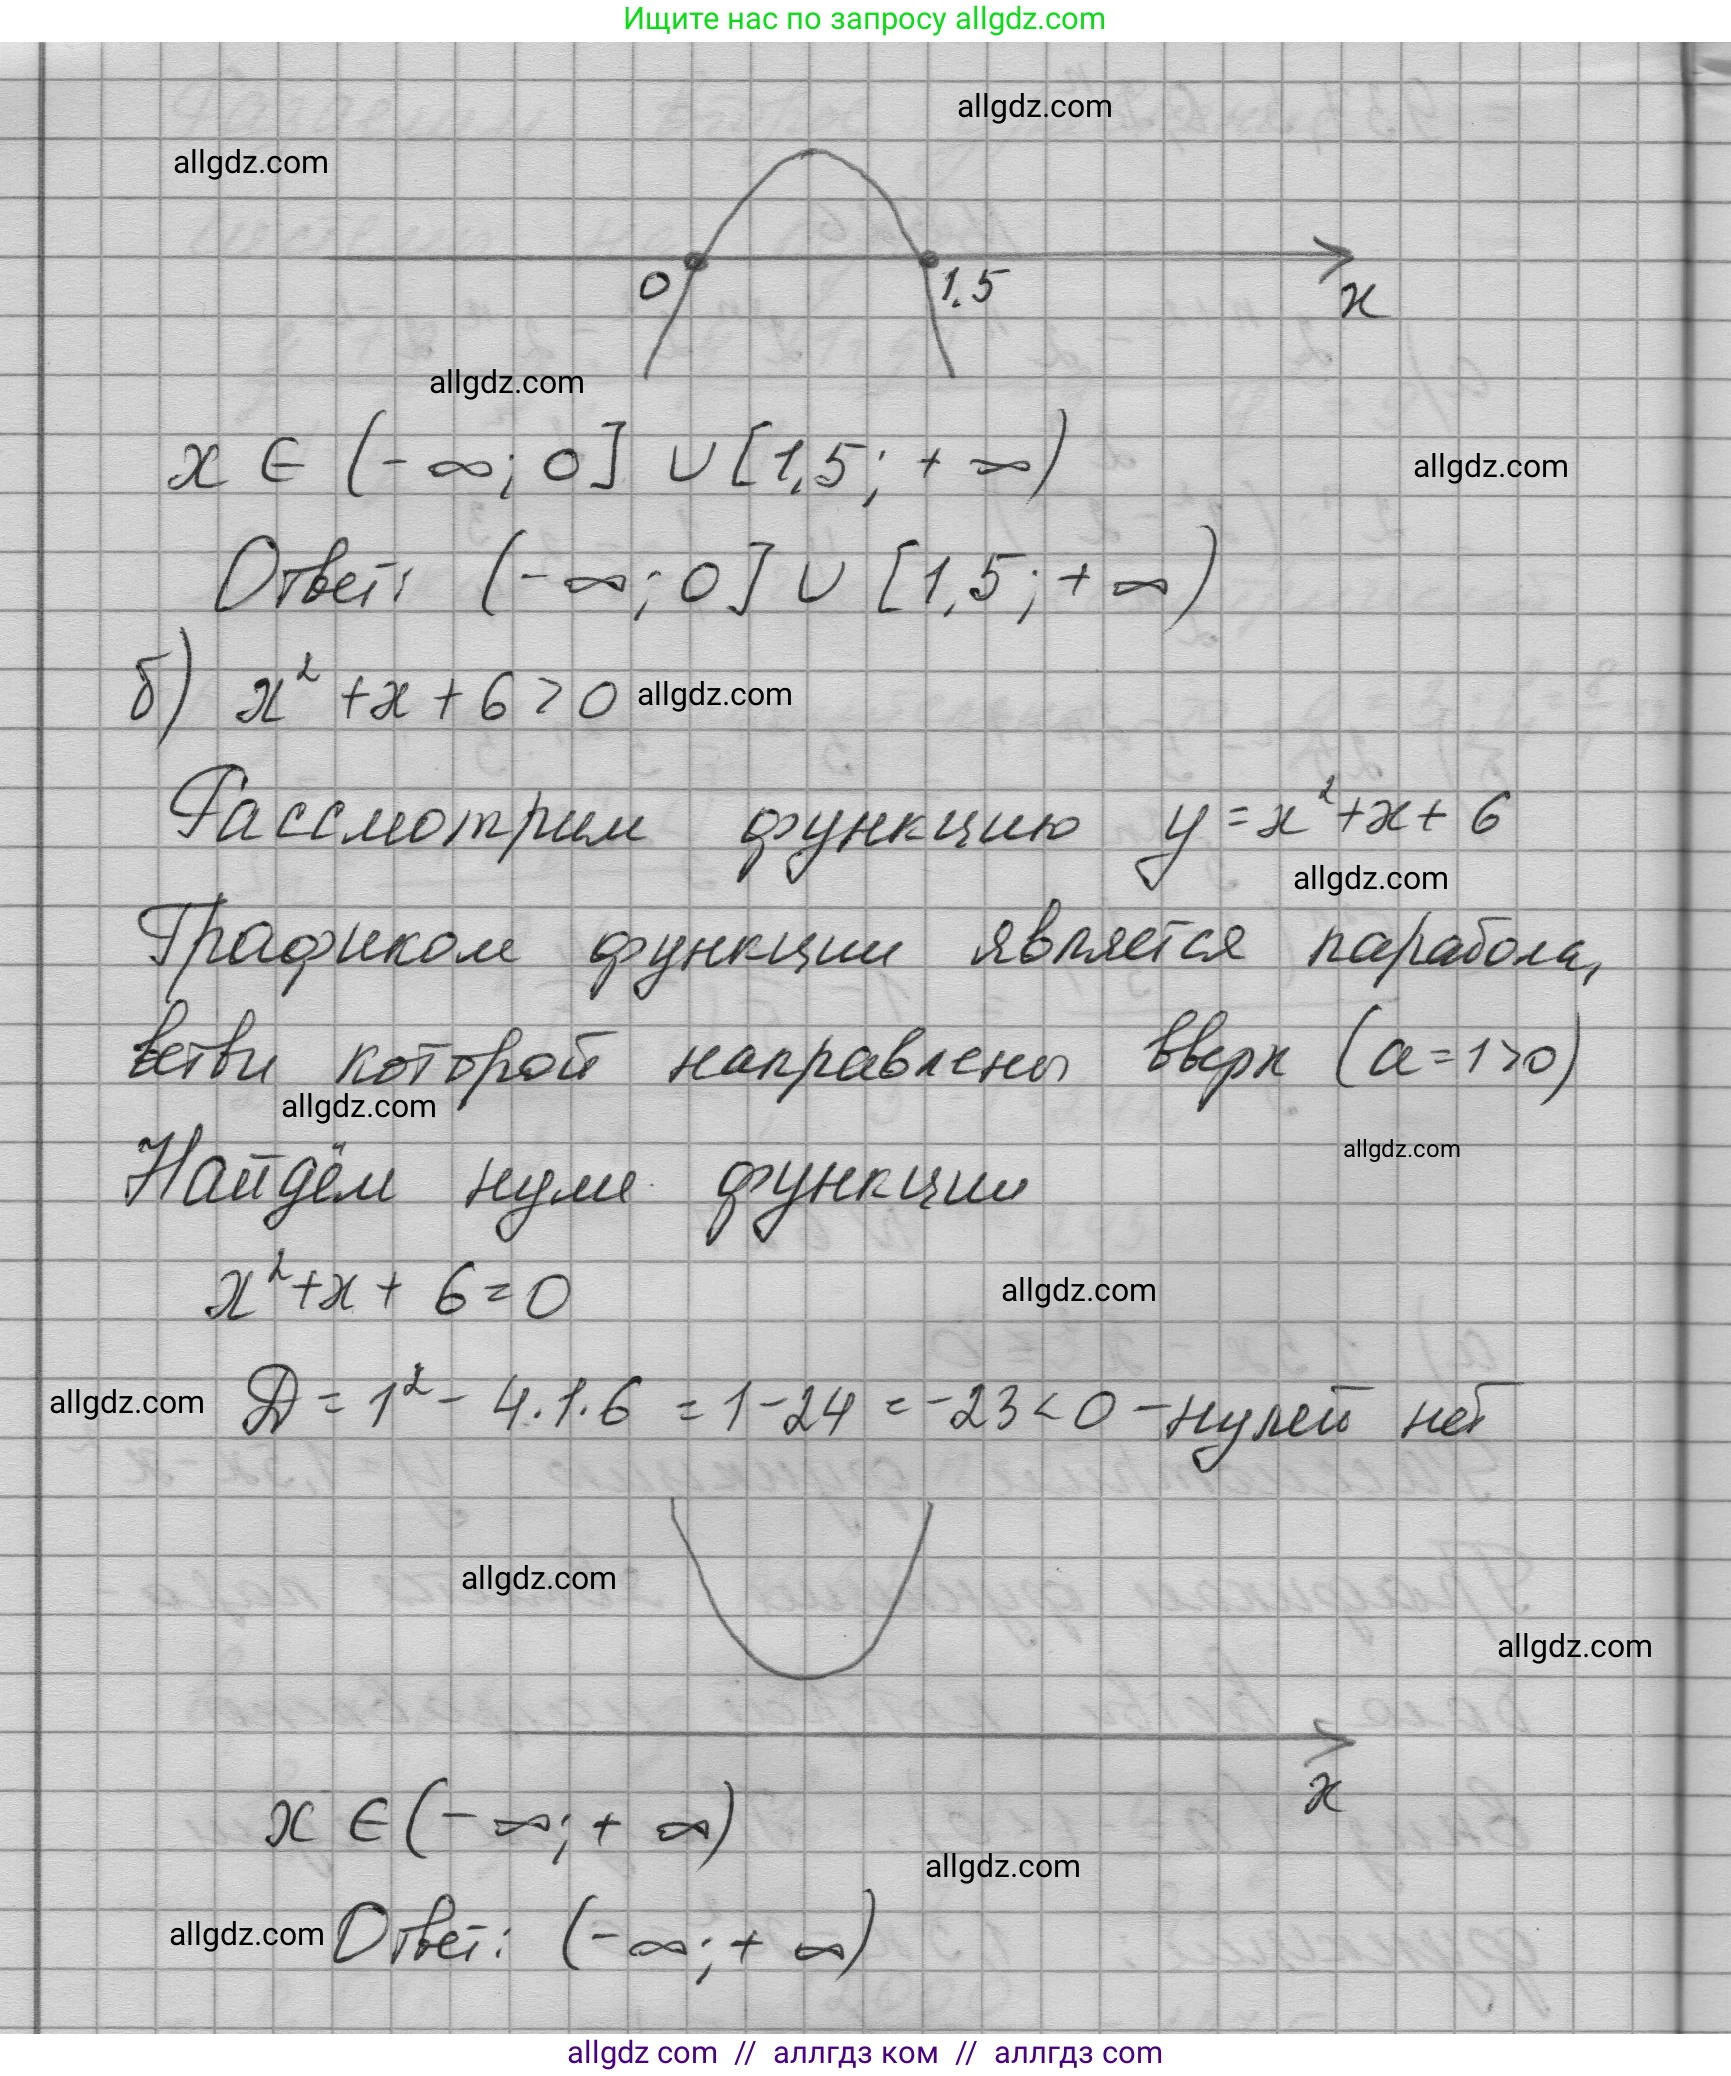 Ищите нас по запросу allgdz.com
allgdz.com
allgdz.com
0 1,5 x
allgdz.com
x ∈ (-∞; 0] ∪ [1,5; +∞)
allgdz.com
Ответ: (-∞; 0] ∪ [1,5; +∞)
б) x² + x + 6 > 0 allgdz.com
Рассмотрим функцию y = x² + x + 6
allgdz.com
Графиком функции является парабола,
ветви которой направлены вверх (a = 1 > 0)
allgdz.com
allgdz.com
Найдём нули функции
x² + x + 6 = 0
allgdz.com
allgdz.com D = 1² - 4·1·6 = 1 - 24 = -23 < 0 - нулей нет
allgdz.com
allgdz.com
x
x ∈ (-∞; +∞)
allgdz.com
allgdz.com Ответ: (-∞; +∞)
allgdz com // аллгдз ком // аллгдз com